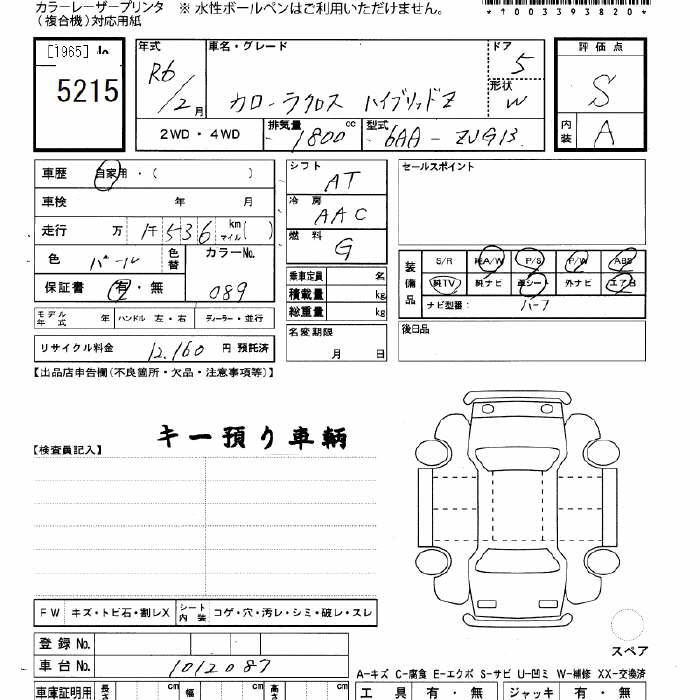 カラーレーザープリンタ ※ 水性ボールペンはご利用いただけません。
(複合機)対応用紙 *1003393820*
[1965] 年式 車名・グレード ドア 評価点
5215 R6/2月 カローラクロス ハイブリッドZ 5 S
形状 W
2WD・4WD 排気量 1800 cc 型式 6AA-ZVG13 内装 A
車歴 自家用・( ) シフト AT セールスポイント
車検 年 月 冷房 AAC
走行 万 千536 km マイル ( ) 燃料 G
色 パール 色替 カラーNo. 089 装備品 S/R 純A/W P/S P/W ABS
保証書 有・無 乗車定員 名 純TV 純ナビ 革シート 外ナビ エアB
積載量 kg ナビ型番: ハーフ
モデル年式 年 ハンドル 左・右 ディーラー・並行 総重量 kg
リサイクル料金 12,160 円 預託済 名変期限 月 日 後日品
【出品店申告欄(不良箇所・欠品・注意事項等)】
キー預り車輌
【検査員記入】
FW キズ・トビ石・割レX シート内装 コゲ・穴・汚レ・シミ・破レ・スレ
登録No. スペア
車台No. 1012087 A-キズ C-腐食 E-エクボ S-サビ U-凹ミ W-補修 XX-交換済
車庫証明用 長さ cm 幅 cm 高さ cm 工具 有・無 ジャッキ 有・無